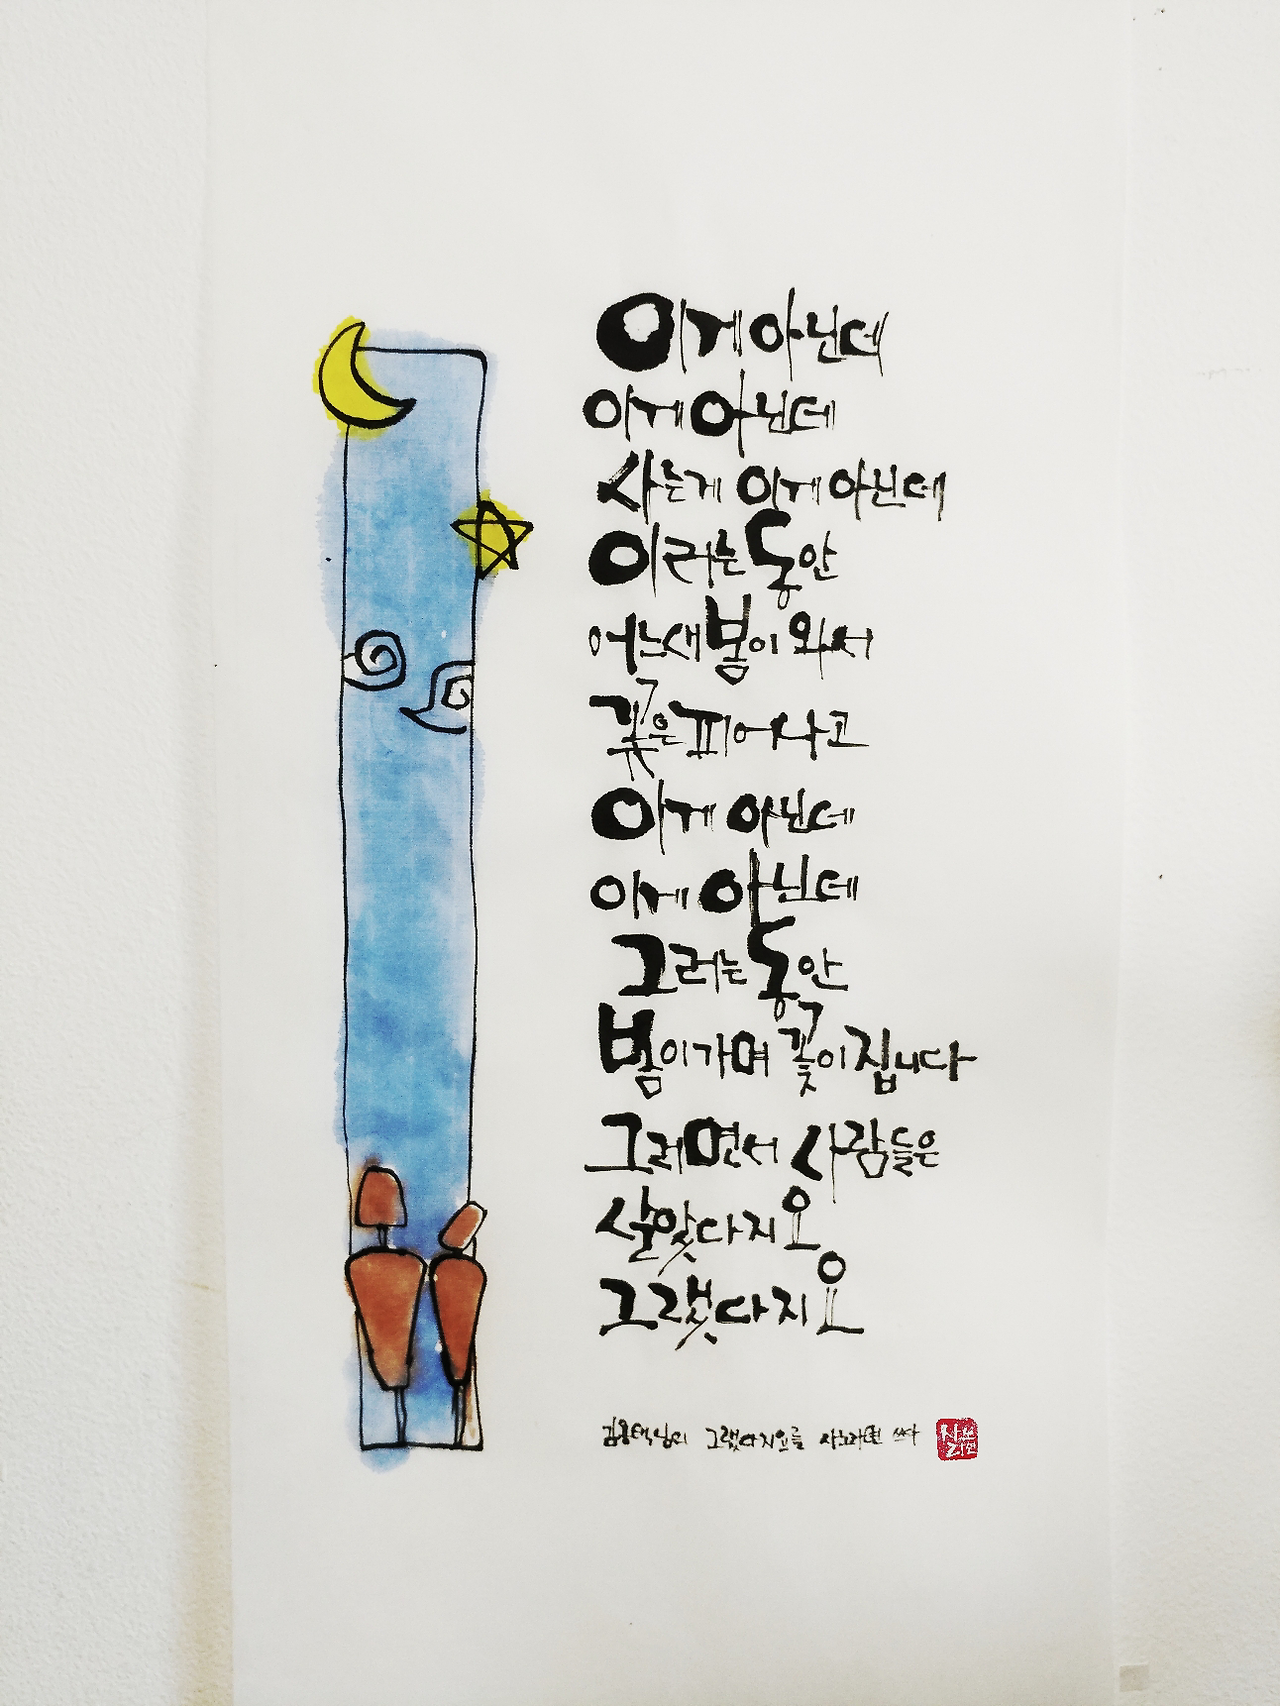 이게 아닌데
이게 아닌데
사는게 이게 아닌데
이러는 동안
어느새 봄이 와서
꽃은 피어나고
이게 아닌데
이게 아닌데
그러는 동안
봄이 가며 꽃이 집니다
그러면서 사람들은
살았다지요
그랬다지요
김용택님의 그랬다지요를 쓰다